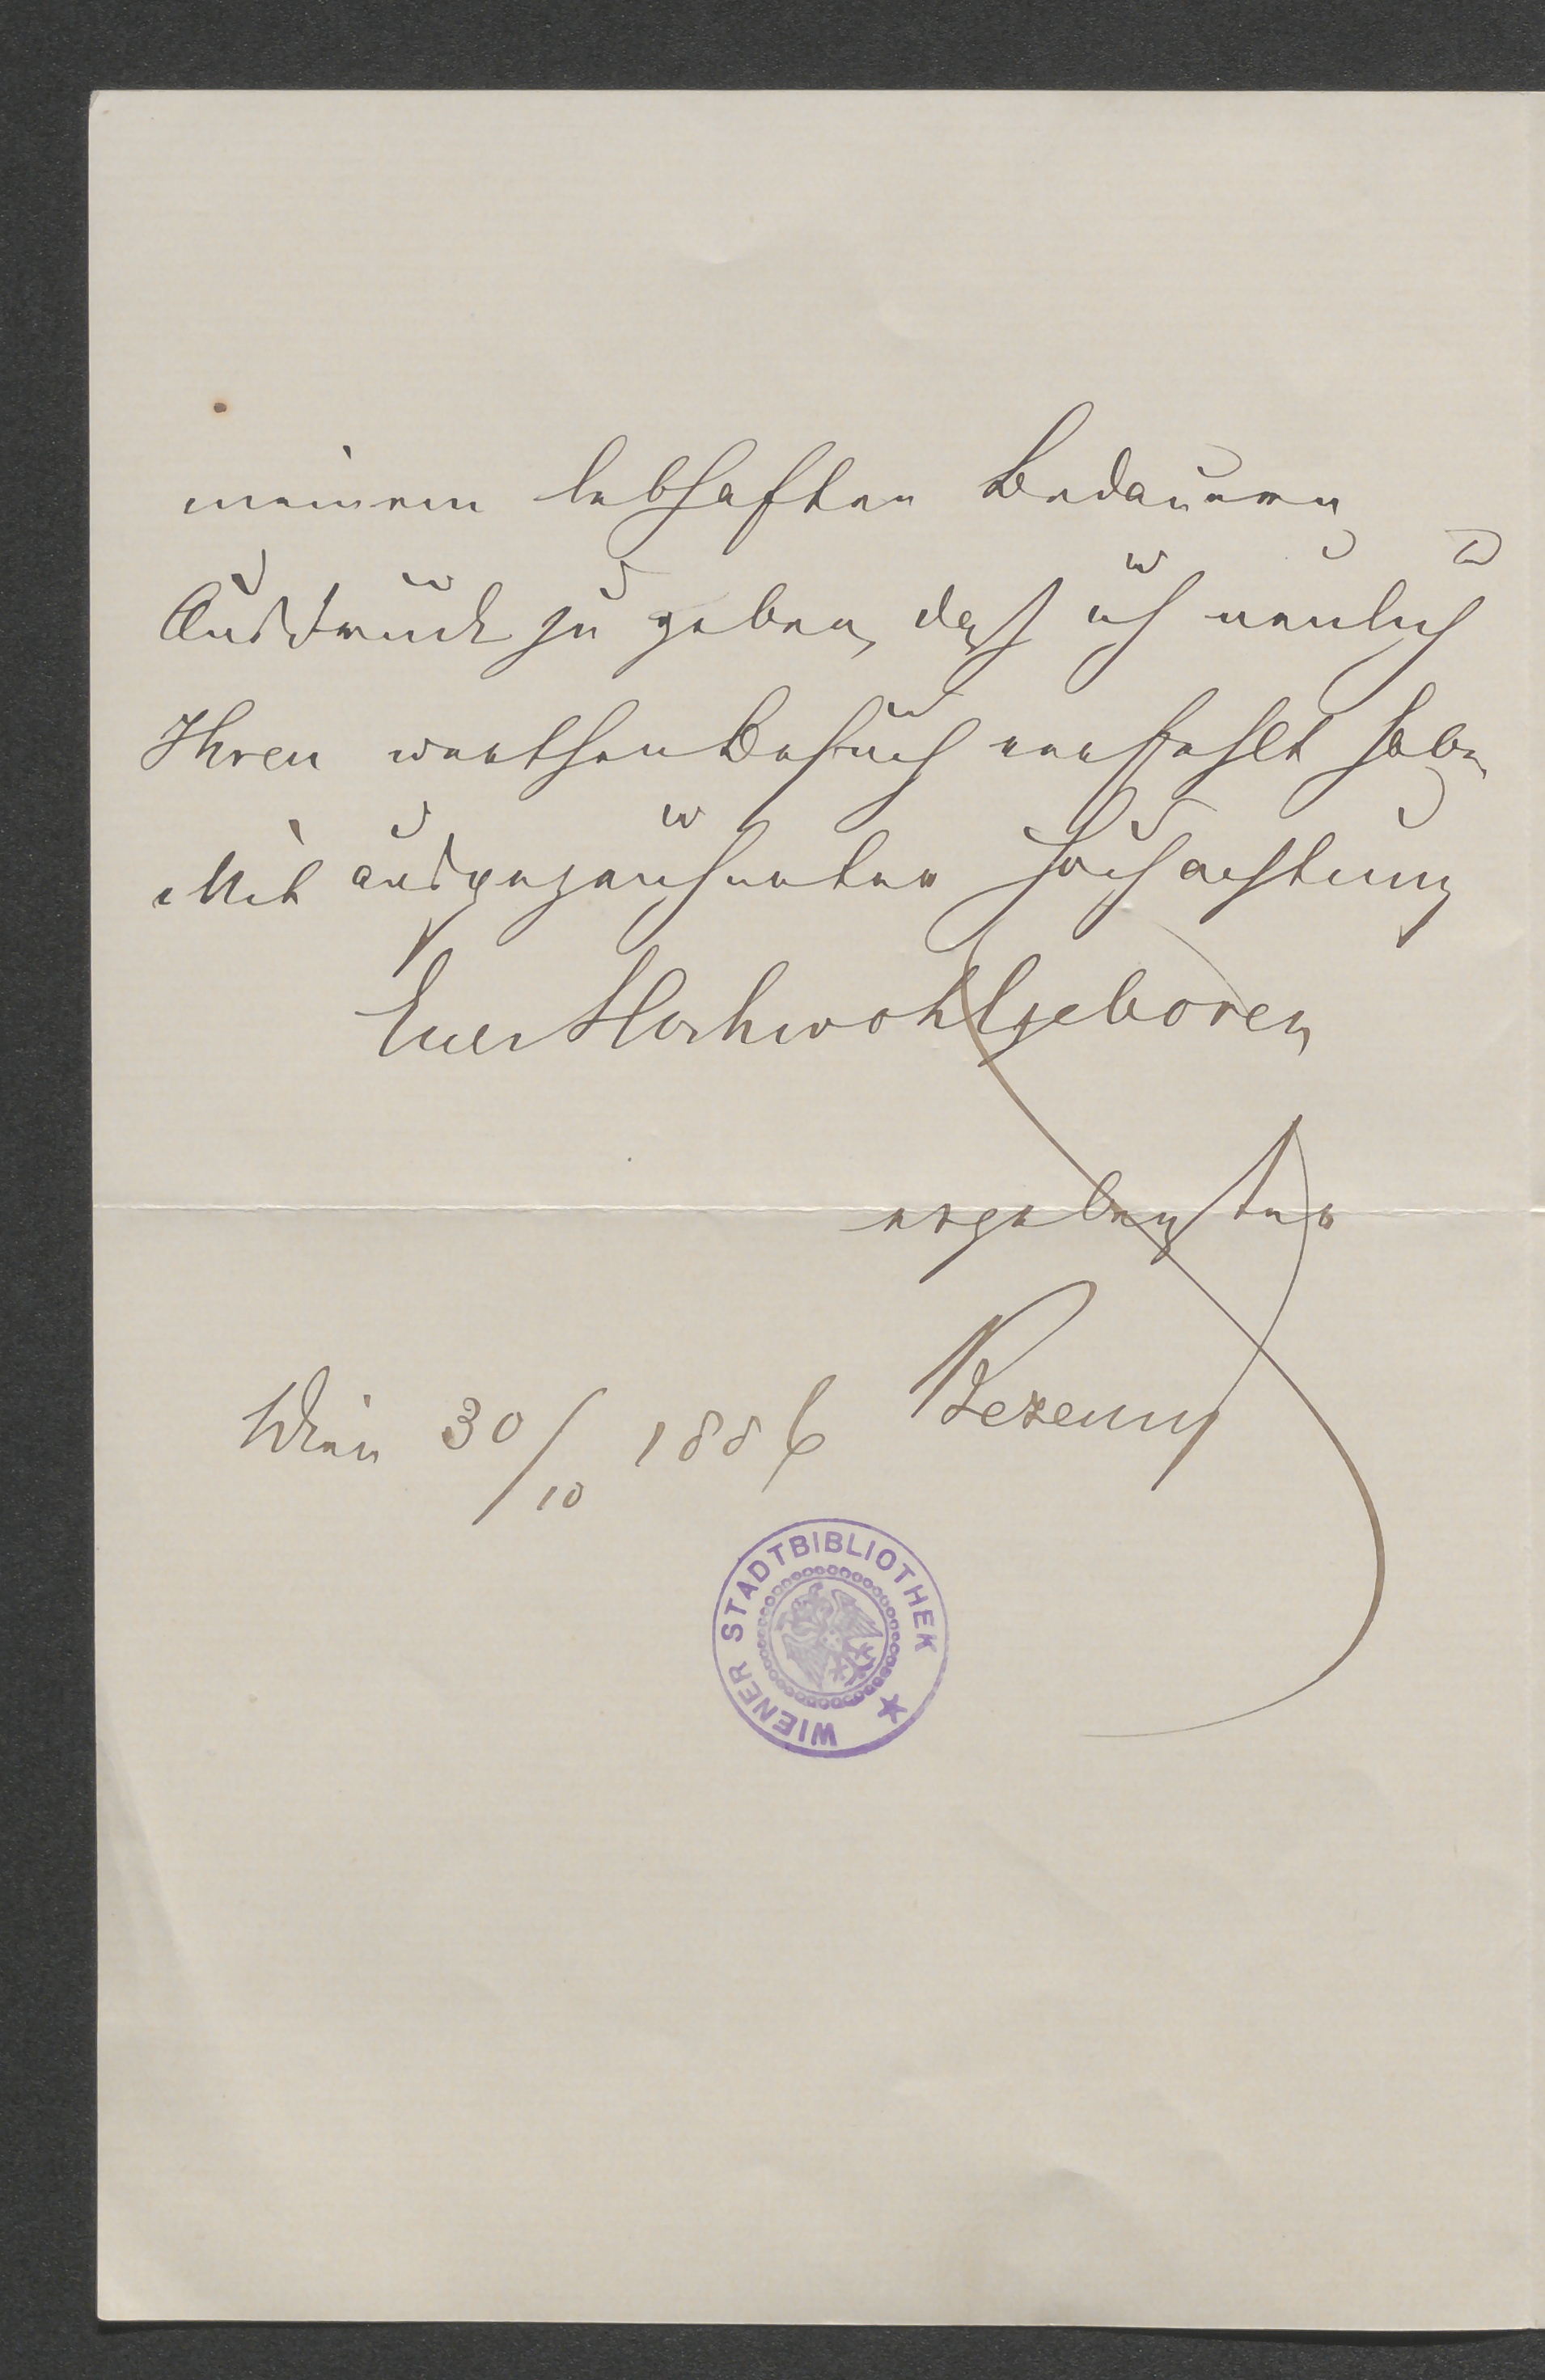 meinem lebhaften Bedauern
Ausdruck zu geben, daß ich neulich
Ihren werthen Besuch verfehlt habe.
Mit ausgezeichneter Hochachtung
Euer Hochwohlgeboren
ergebenster
Bezecny
Wien 30/10 1886
WIENER STADTBIBLIOTHEK